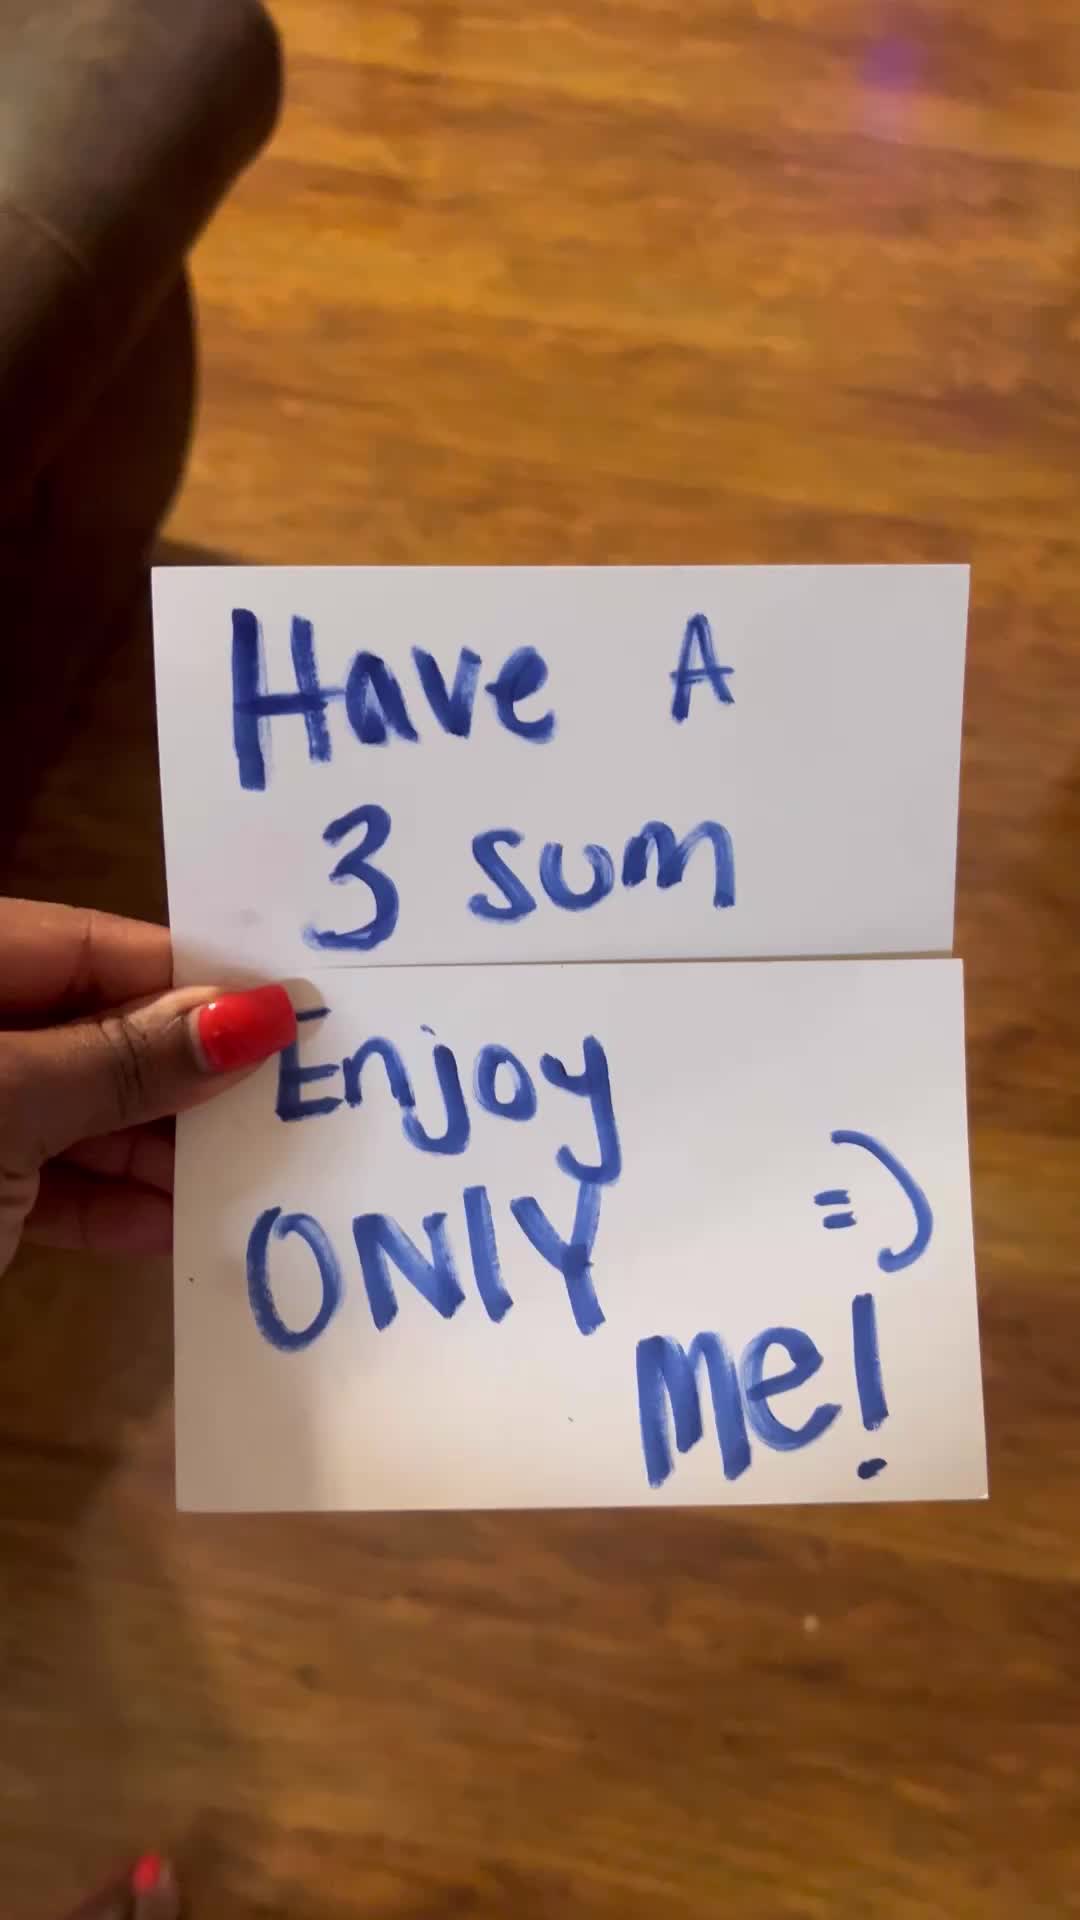 Have A
3 sum
Enjoy
ONlY =)
me!